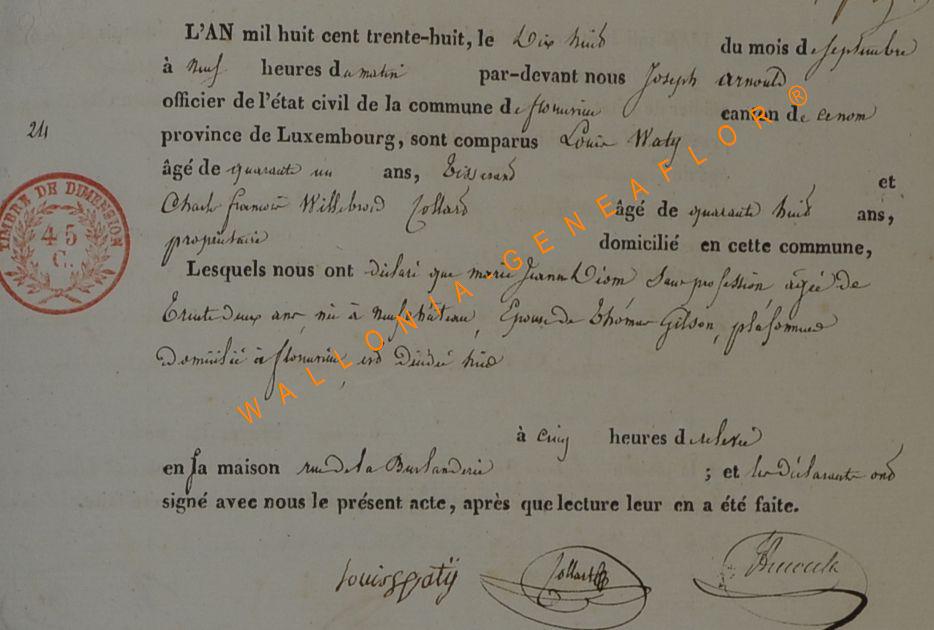 L'AN mil huit cent trente-huit, le Dix huit du mois de septembre
à neuf heures du matin par-devant nous Joseph Arnould
officier de l'état civil de la commune de florenville canton de
24
province de Luxembourg, sont comparus Louis Waty
âgé de quarante un ans, tisserand et
Charle françois Willebrord Collard âgé de quarante huit ans,
propriétaire domicilié en cette commune,
Lesquels nous ont déclaré que marie Jeanne Diom Sans profession, agée de
trente deux ans, née à neufchâteau, Epouse de thomas Gilson, plafonneur
domicilié à florenville, est décédée hier
à cinq heures de relevée
en sa maison rue de la ; et les déclarants ont
signé avec nous le présent acte, après que lecture leur en a été faite.
TIMBRE DE DIMENSION
45
C.
WALLONIA-GENEAFLOR®
louis Watÿ Collard